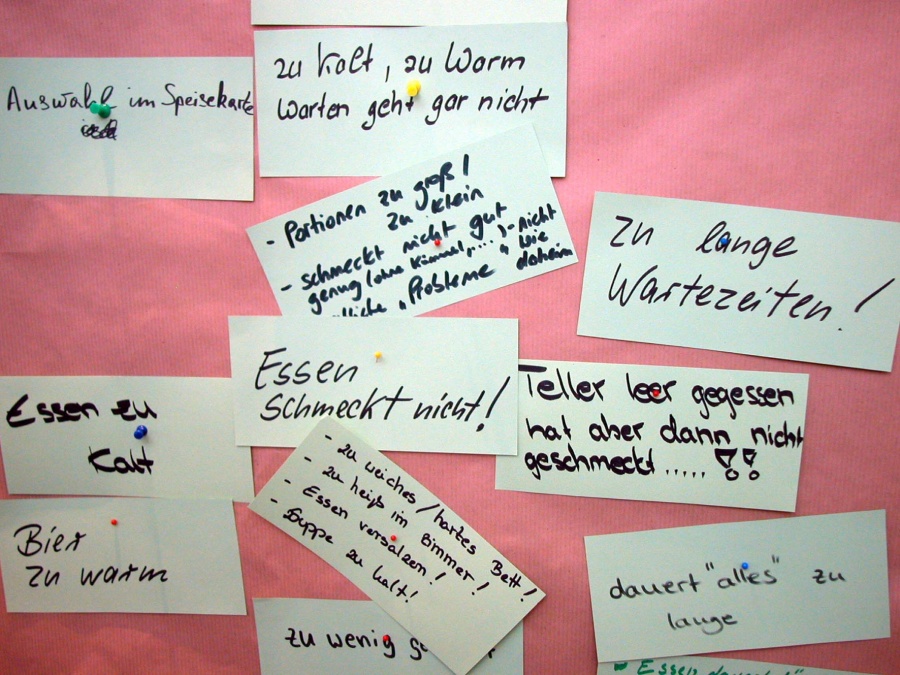 Auswahl im Speisekarte
zu kalt, zu warm
warten geht gar nicht
- Portionen zu groß!
zu klein
- schmeckt nicht gut
genug (ohne Kümmel,....) - nicht
"Probleme" wie
daheim
Zu lange
Wartezeiten!
Essen
schmeckt nicht!
Teller leer gegessen
hat aber dann nicht
geschmeckt.....!!
Essen zu
kalt
- zu weiches / hartes Bett!
- zu heiß im Zimmer!
- Essen versalzen!
- Suppe zu kalt!
Bier
zu warm
dauert "alles" zu
lange
zu wenig
Essen dauert